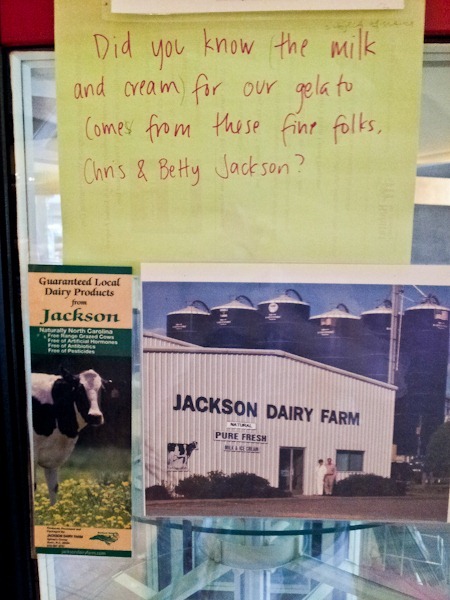 Did you know (the milk
and cream) for our gelato
comes from these fine folks,
Chris & Betty Jackson?
Guaranteed Local
Dairy Products
from
Jackson
Naturally North Carolina
Free Range Grazed Cows
Free of Artificial Hormones
Free of Antibiotics
Free of Pesticides
JACKSON DAIRY FARM
JACKSON DAIRY FARM
NATURAL
PURE FRESH
MILK & ICE CREAM